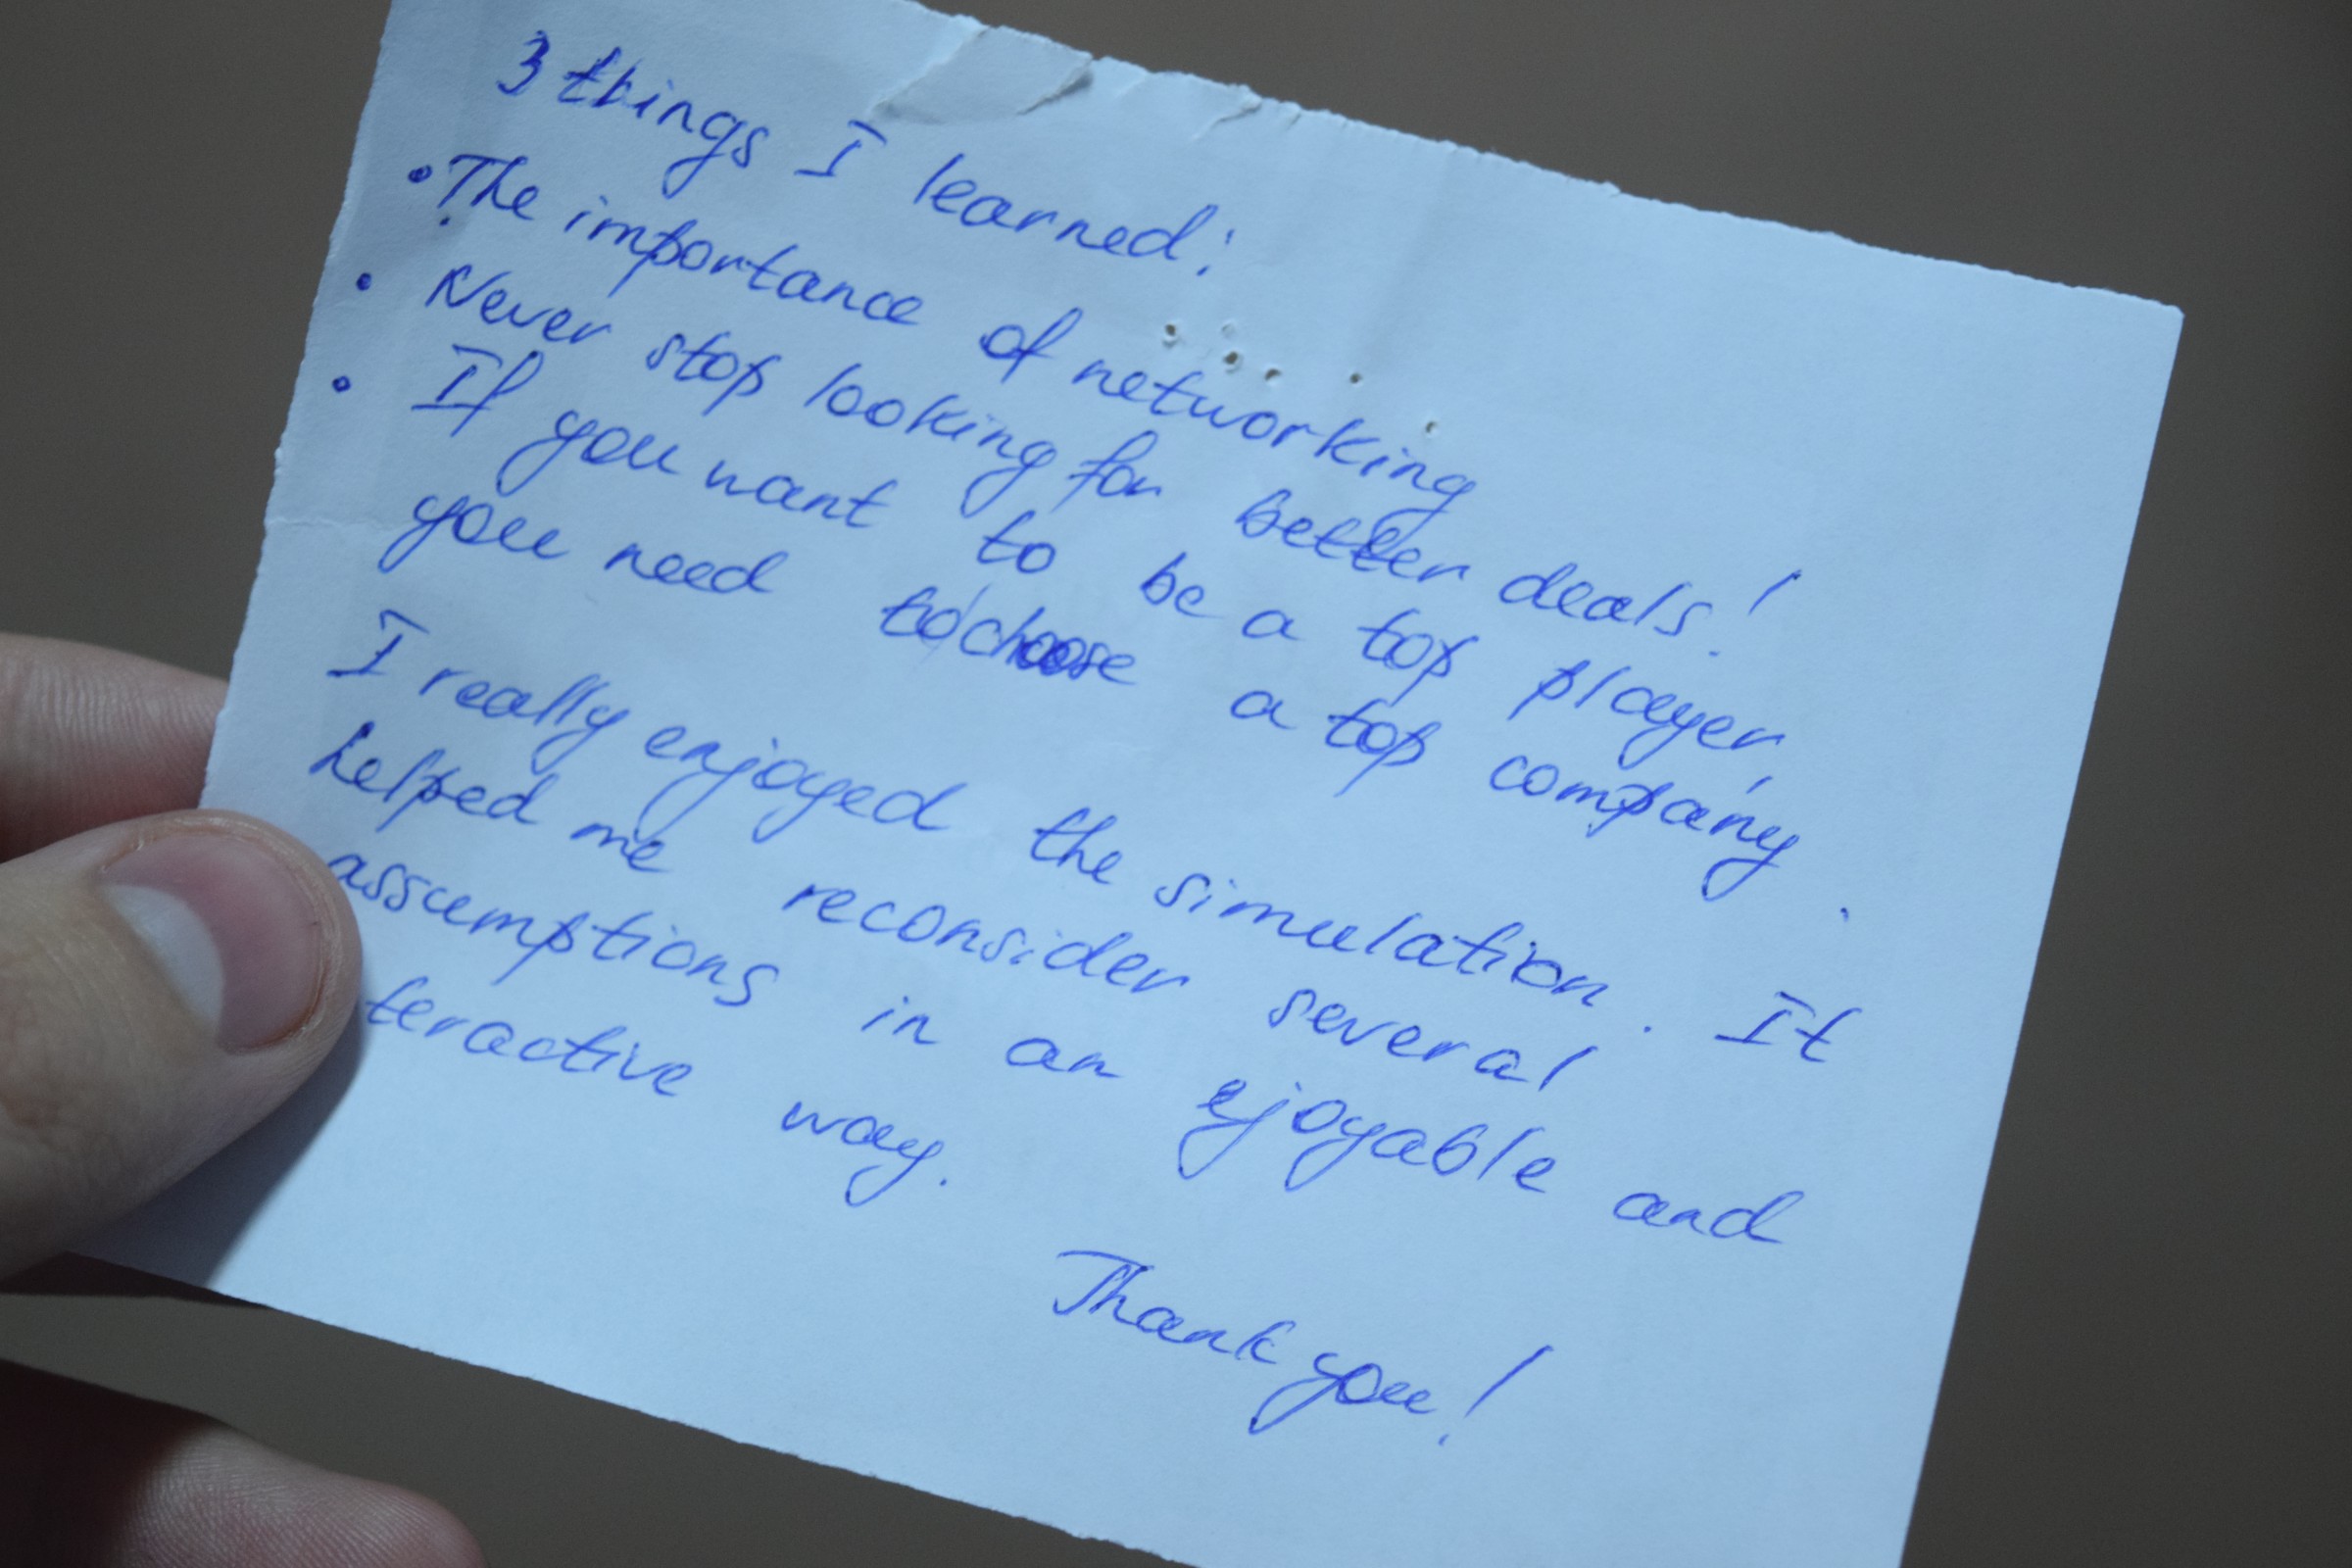 3 things I learned:
• The importance of networking
• Never stop looking for better deals!
• If you want to be a top player,
you need to choose a top company.
I really enjoyed the simulation. It
helped me reconsider several
assumptions in an ejoyable and
teractive way.
Thank you!